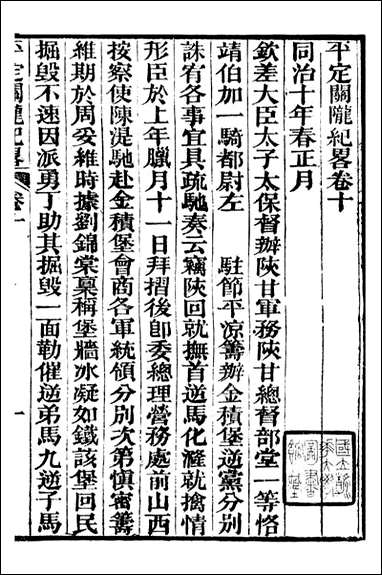 平定關隴紀畧卷十
同治十年春正月
欽差大臣太子太保督辦陝甘軍務陝甘總督部堂一等恪
靖伯加一騎都尉左　駐節平凉籌辦金積堡逆黨分別
誅宥各事宜具疏馳奏云竊陝回就撫首逆馬化漋就擒情
形臣於上年臘月十一日拜摺後卽委總理營務處前山西
按察使陳湜馳赴金積堡會商各軍統領分別次第愼密籌
維期於周妥維時據劉錦棠稟稱堡牆冰凝如鐵該堡回民
掘毀不速因派勇丁助其掘毀一面勒催逆弟馬九逆子馬
平定關隴紀畧
卷十
一